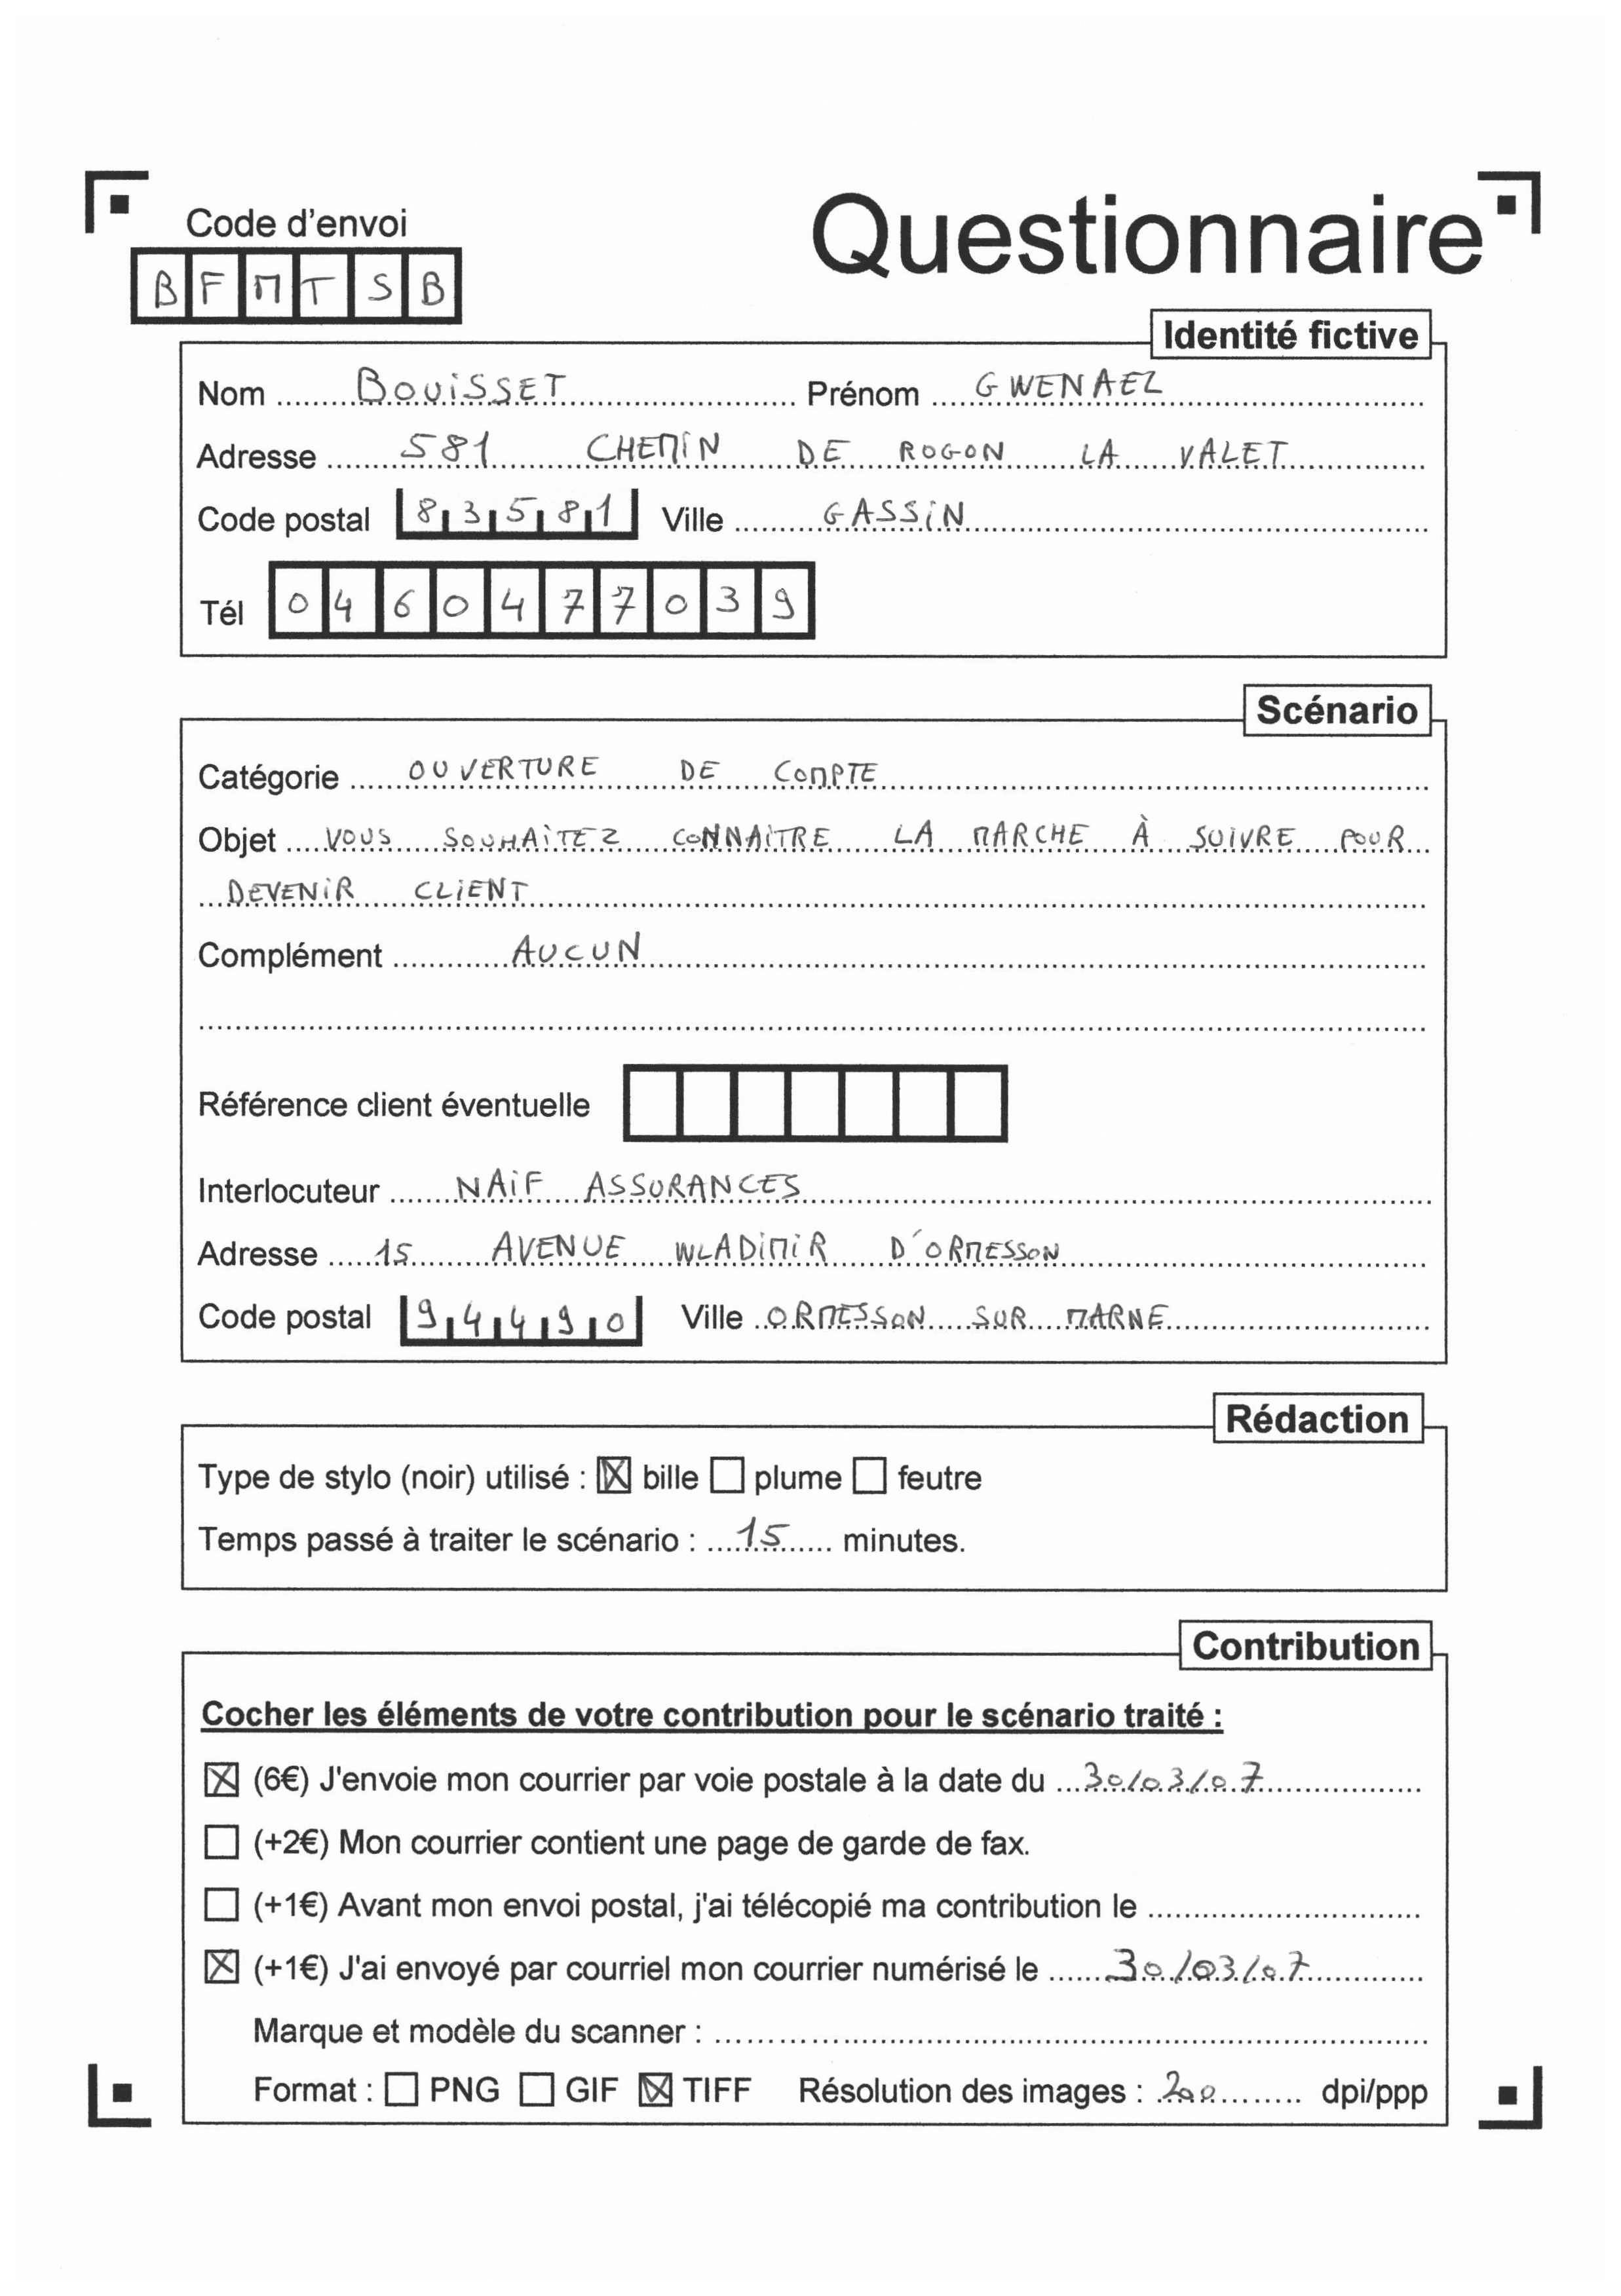 Code d'envoi
Questionnaire
BFMTSB
Identité fictive
Nom ........BOUISSET........ Prénom ....GWENAEL........
Adresse ......581 CHEMIN DE ROGON LA VALET........
Code postal 83581 Ville ........GASSIN........
Tél 0460477039
Scénario
Catégorie ....OUVERTURE DE COMPTE........
Objet ....VOUS SOUHAITEZ CONNAITRE LA MARCHE À SUIVRE POUR...
...DEVENIR CLIENT........
Complément ........AUCUN........
Référence client éventuelle
Interlocuteur ......NAIF ASSURANCES........
Adresse .....15 AVENUE WLADIMIR D'ORMESSON........
Code postal 94490 Ville ..ORMESSON SUR MARNE........
Rédaction
Type de stylo (noir) utilisé : ☒ bille ☐ plume ☐ feutre
Temps passé à traiter le scénario : ...15.... minutes.
Contribution
Cocher les éléments de votre contribution pour le scénario traité :
☒ (6€) J'envoie mon courrier par voie postale à la date du ...30/03/07........
☐ (+2€) Mon courrier contient une page de garde de fax.
☐ (+1€) Avant mon envoi postal, j'ai télécopié ma contribution le ........
☒ (+1€) J'ai envoyé par courriel mon courrier numérisé le ......30/03/07........
Marque et modèle du scanner : ........
Format : ☐ PNG ☐ GIF ☒ TIFF Résolution des images : .200........ dpi/ppp